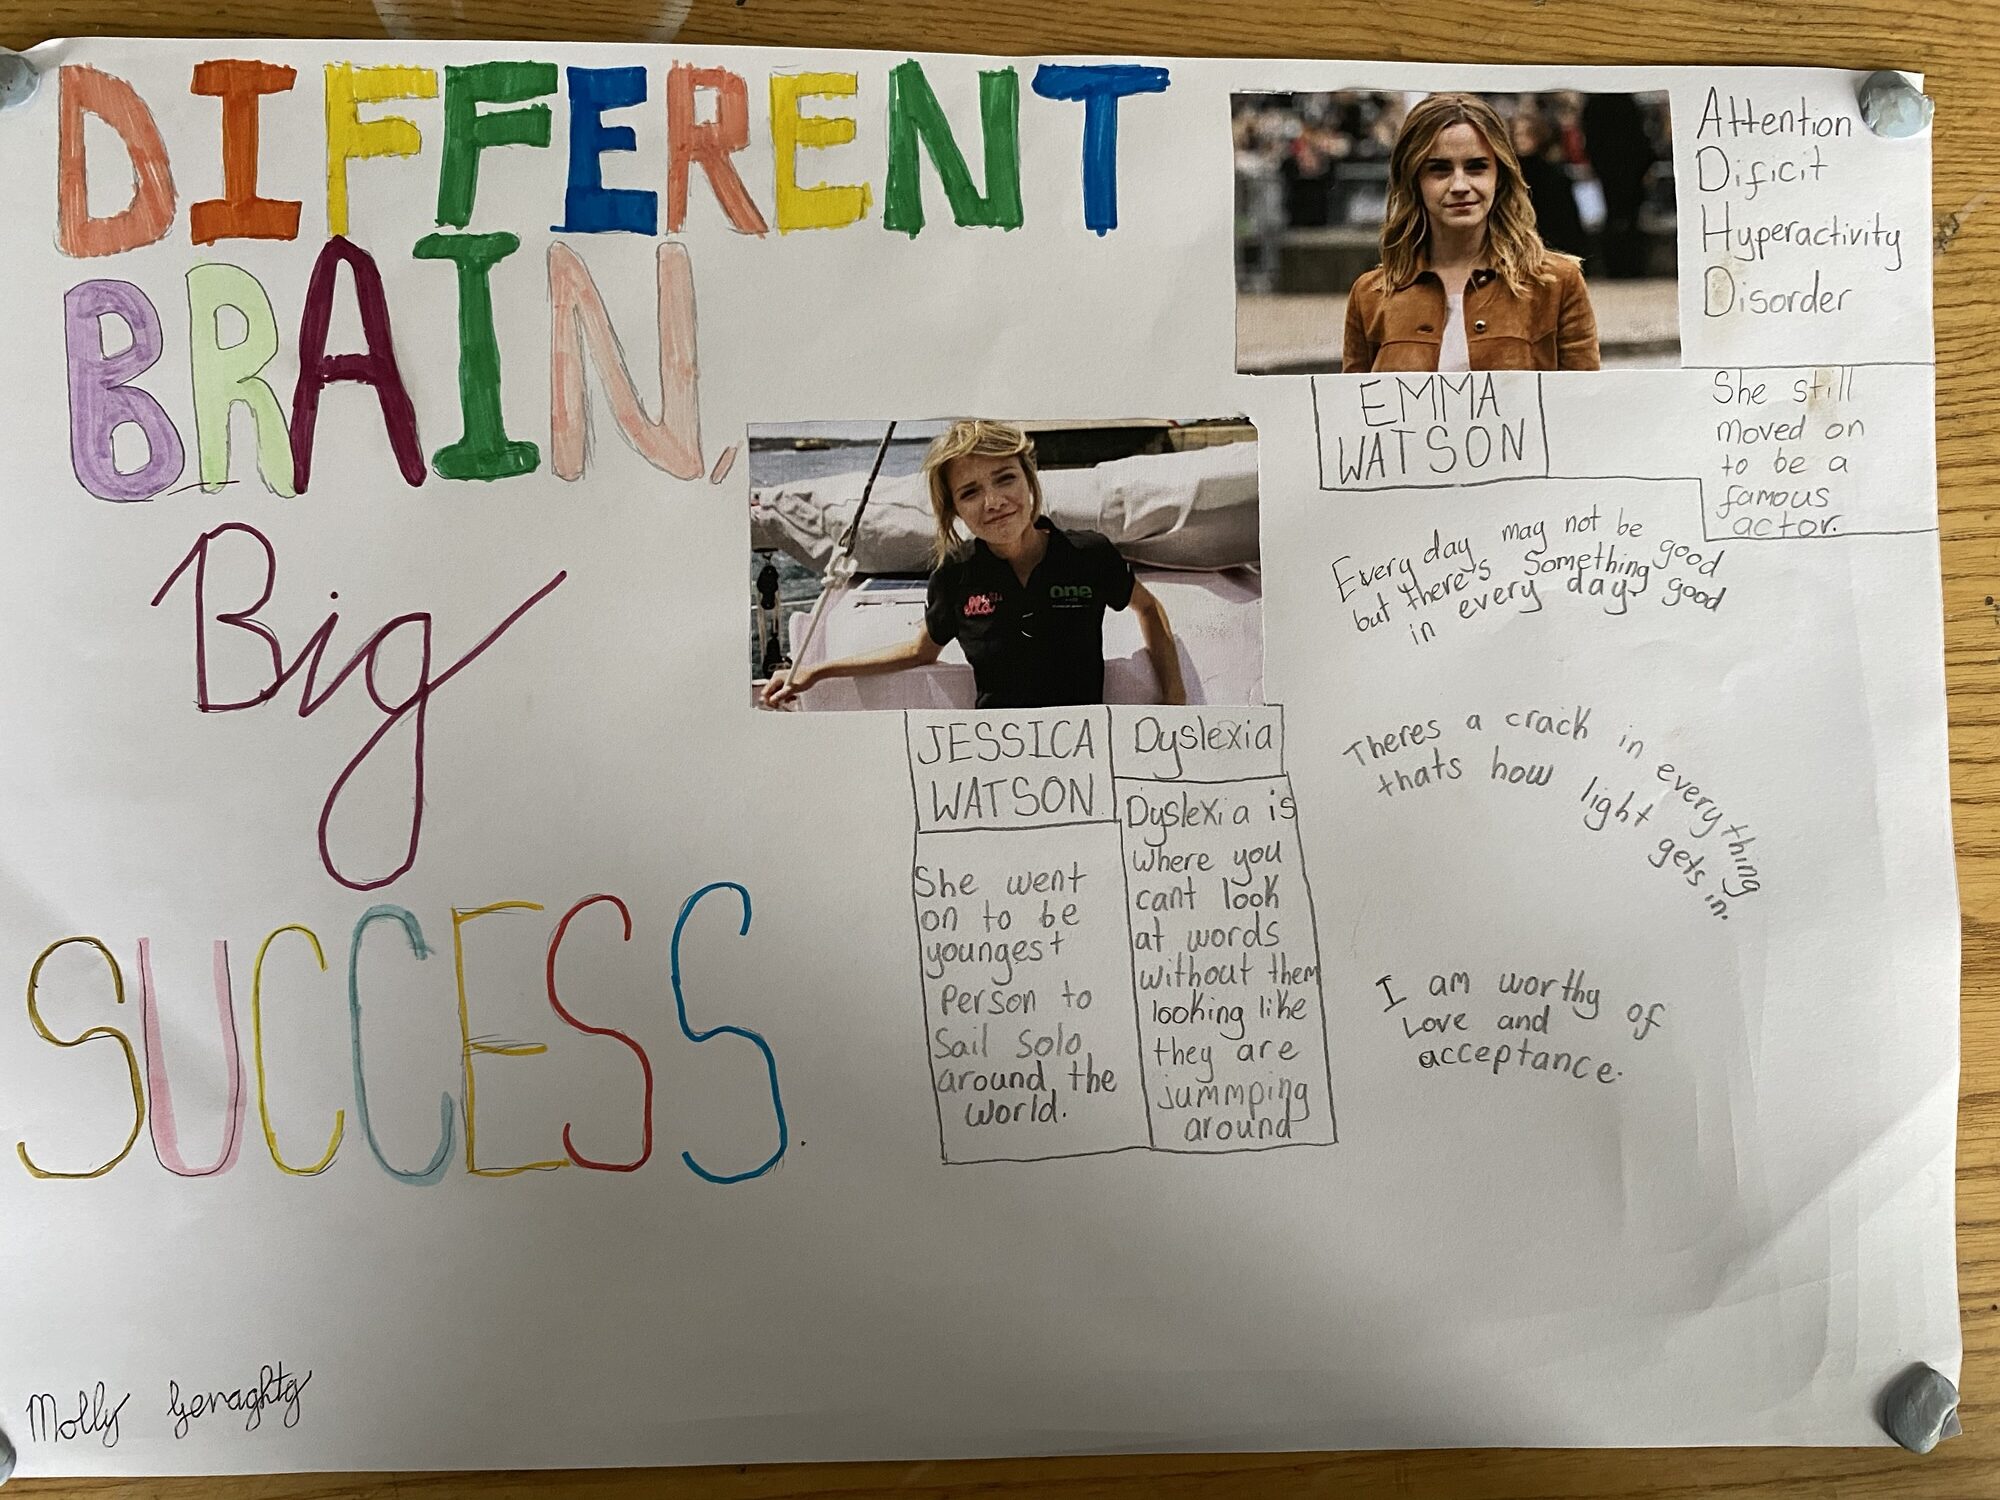 DIFFERENT
BRAIN,
Big
SUCCESS.
Attention
Dificit
Hyperactivity
Disorder
EMMA
WATSON
She still
moved on
to be a
famous
actor.
one
JESSICA
WATSON
She went
on to be
youngest
Person to
Sail solo
around the
world.
Dyslexia
Dyslexia is
where you
cant look
at words
without them
looking like
they are
jummping
around
Every day may not be good
but there's Something good
in every day
Theres a crack in everything
thats how light gets in.
I am worthy of
Love and
acceptance.
Molly Geraghty